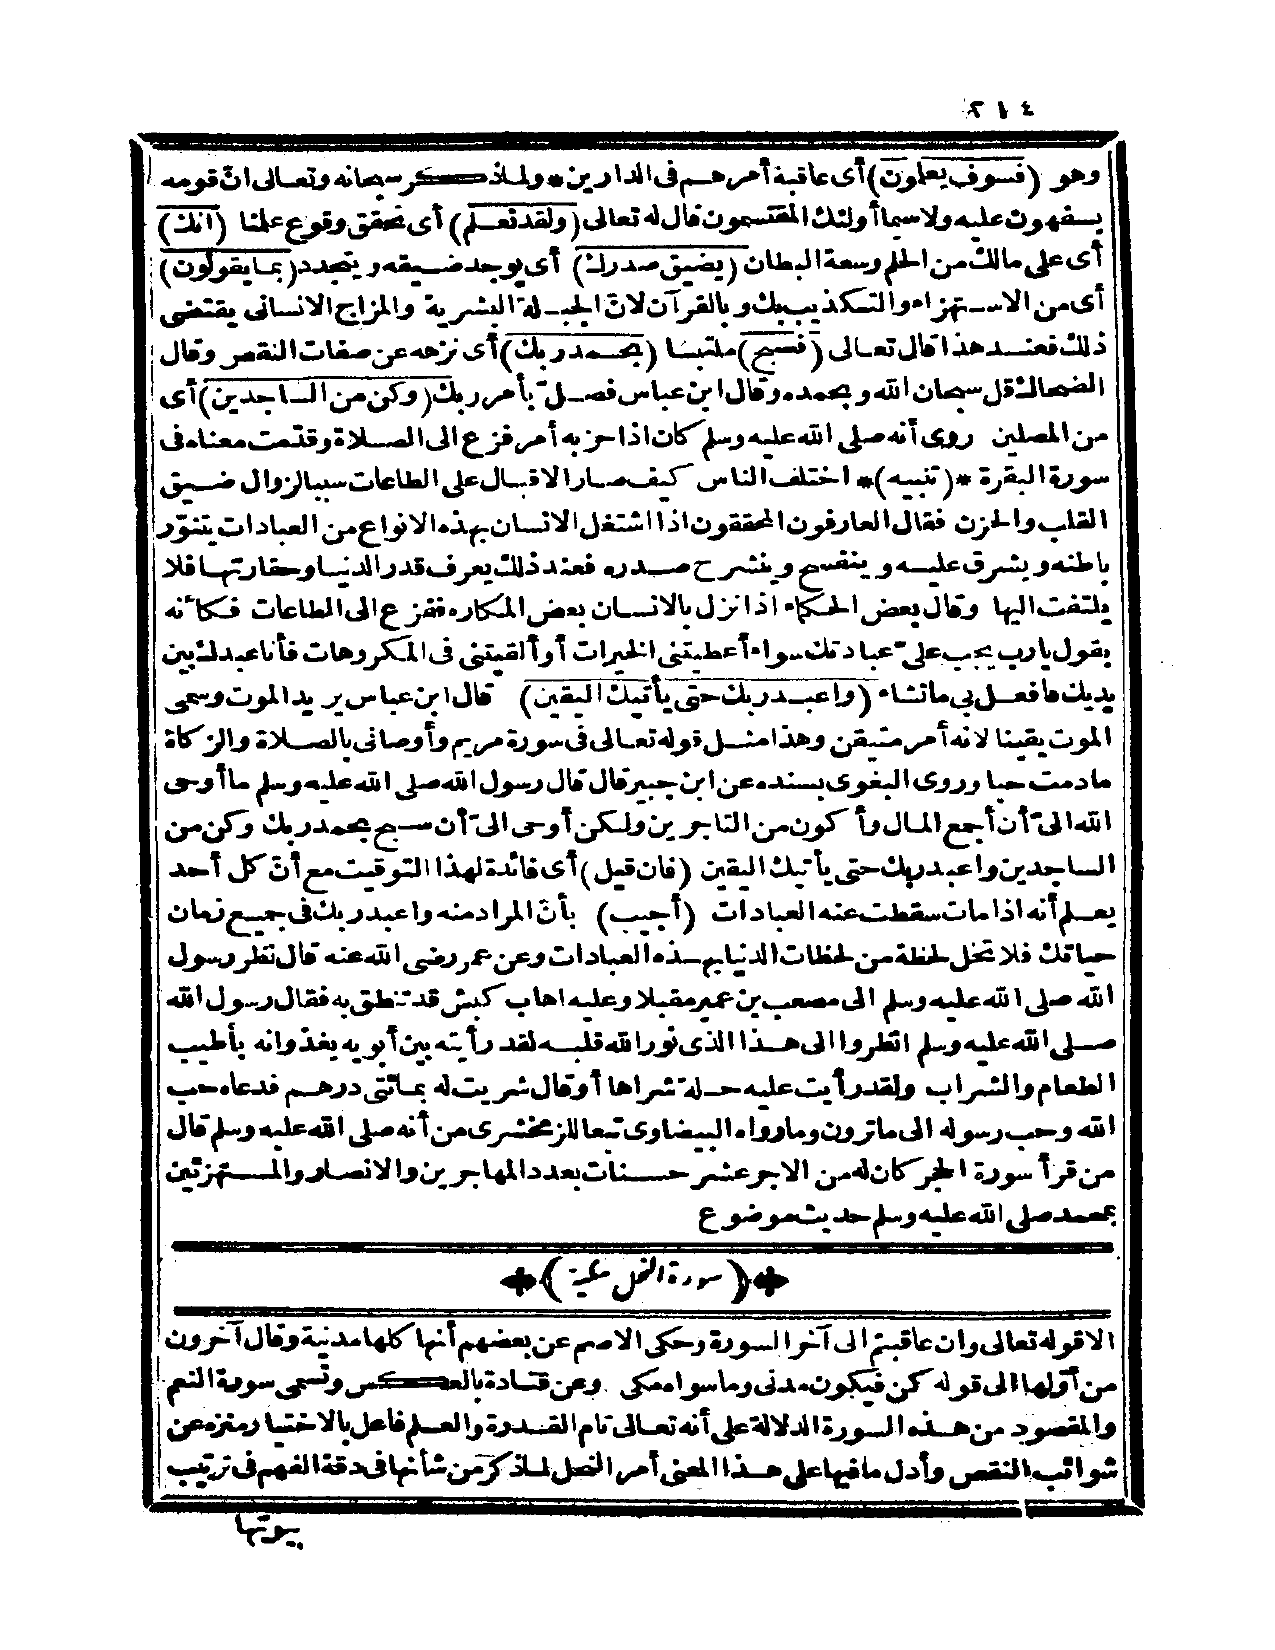 ٢١٤
وهو (فسوف يعلمون) أى عاقبة أمرهم فى الدارين * ولما ذكر سبحانه وتعالى ان قومه
يسفهون عليه ولا سيما أولئك المقتسمون قال له تعالى (ولقد نعلم) أى تحقق وقوع علمنا (انك)
أى على مالك من الحلم وسعة البطان (يضيق صدرك) أى يوجد ضيقه ويتجدد (بما يقولون)
أى من الاستهزاء والتكذيب بك وبالقرآن لان الجبلة البشرية والمزاج الانسانى يقتضى
ذلك فعند هذا قال تعالى (فسبح) ملتبسا (بحمد ربك) أى نزهه عن صفات النقص وقال
الضحاك قل سبحان الله وبحمده وقال ابن عباس فصل بأمر ربك (وكن من الساجدين) أى
من المصلين روى أنه صلى الله عليه وسلم كان اذا حزبه أمر فزع الى الصلاة وقدمت معناه فى
سورة البقرة * (تنبيه) * اختلف الناس كيف صار الاقبال على الطاعات سببا لزوال ضيق
القلب والحزن فقال العارفون المحققون اذا اشتغل الانسان بهذه الانواع من العبادات يتنوّر
باطنه ويشرق عليه وينفسح وينشرح صدره فعند ذلك يعرف قدر الدنيا وحقارتها فلا
يلتفت اليها وقال بعض الحكماء اذا نزل بالانسان بعض المكاره ففزع الى الطاعات فكأنه
يقول يارب يجب علىّ عبادتك سواء أعطيتنى الخيرات أو ألقيتنى فى المكروهات فأنا عبدك بين
يديك فافعل بى ما تشاء (واعبد ربك حتى يأتيك اليقين) قال ابن عباس يريد الموت وسمى
الموت يقينا لانه أمر متيقن وهذا مثل قوله تعالى فى سورة مريم وأوصانى بالصلاة والزكاة
ما دمت حيا وروى البغوى بسنده عن ابن جبير قال قال رسول الله صلى الله عليه وسلم ما أوحى
الله الىّ أن أجمع المال وأكون من التاجرين ولكن أوحى الىّ أن سبح بحمد ربك وكن من
الساجدين واعبد ربك حتى يأتيك اليقين (فان قيل) أى فائدة لهذا التوقيت مع أنّ كل أحد
يعلم أنه اذا مات سقطت عنه العبادات (أجيب) بأنّ المراد منه واعبد ربك فى جميع زمان
حياتك فلا تخل لحظة من لحظات الدنيا بهذه العبادات وعن عمر رضى الله عنه قال نظر رسول
الله صلى الله عليه وسلم الى مصعب بن عمير مقبلا وعليه اهاب كبش قد تنطق به فقال رسول الله
صلى الله عليه وسلم انظروا الى هذا الذى نور الله قلبه لقد رأيته بين أبويه يغذوانه بأطيب
الطعام والشراب ولقد رأيت عليه حلة شراها أو قال شريت له بمائتى درهم فدعاه حب
الله وحب رسوله الى ما ترون وما رواه البيضاوى تبعا للزمخشرى من أنه صلى الله عليه وسلم قال
من قرأ سورة الحجر كان له من الاجر عشر حسنات بعدد المهاجرين والانصار والمستهزئين
بمحمد صلى الله عليه وسلم حديث موضوع
(سورة النحل مكية)
الا قوله تعالى وان عاقبتم الى آخر السورة وحكى الاصم عن بعضهم أنها كلها مدنية وقال آخرون
من أوّلها الى قوله كن فيكون مدنى وما سواه مكى وعن قتادة بالعكس وتسمى سورة النعم
والمقصود من هذه السورة الدلالة على أنه تعالى تام القدرة والعلم فاعل بالاختيار منزه عن
شوائب النقص وأدل ما فيها على هذا المعنى أمر النحل لما ذكر من شأنها فى دقة الفهم فى ترتيب
بيوتها